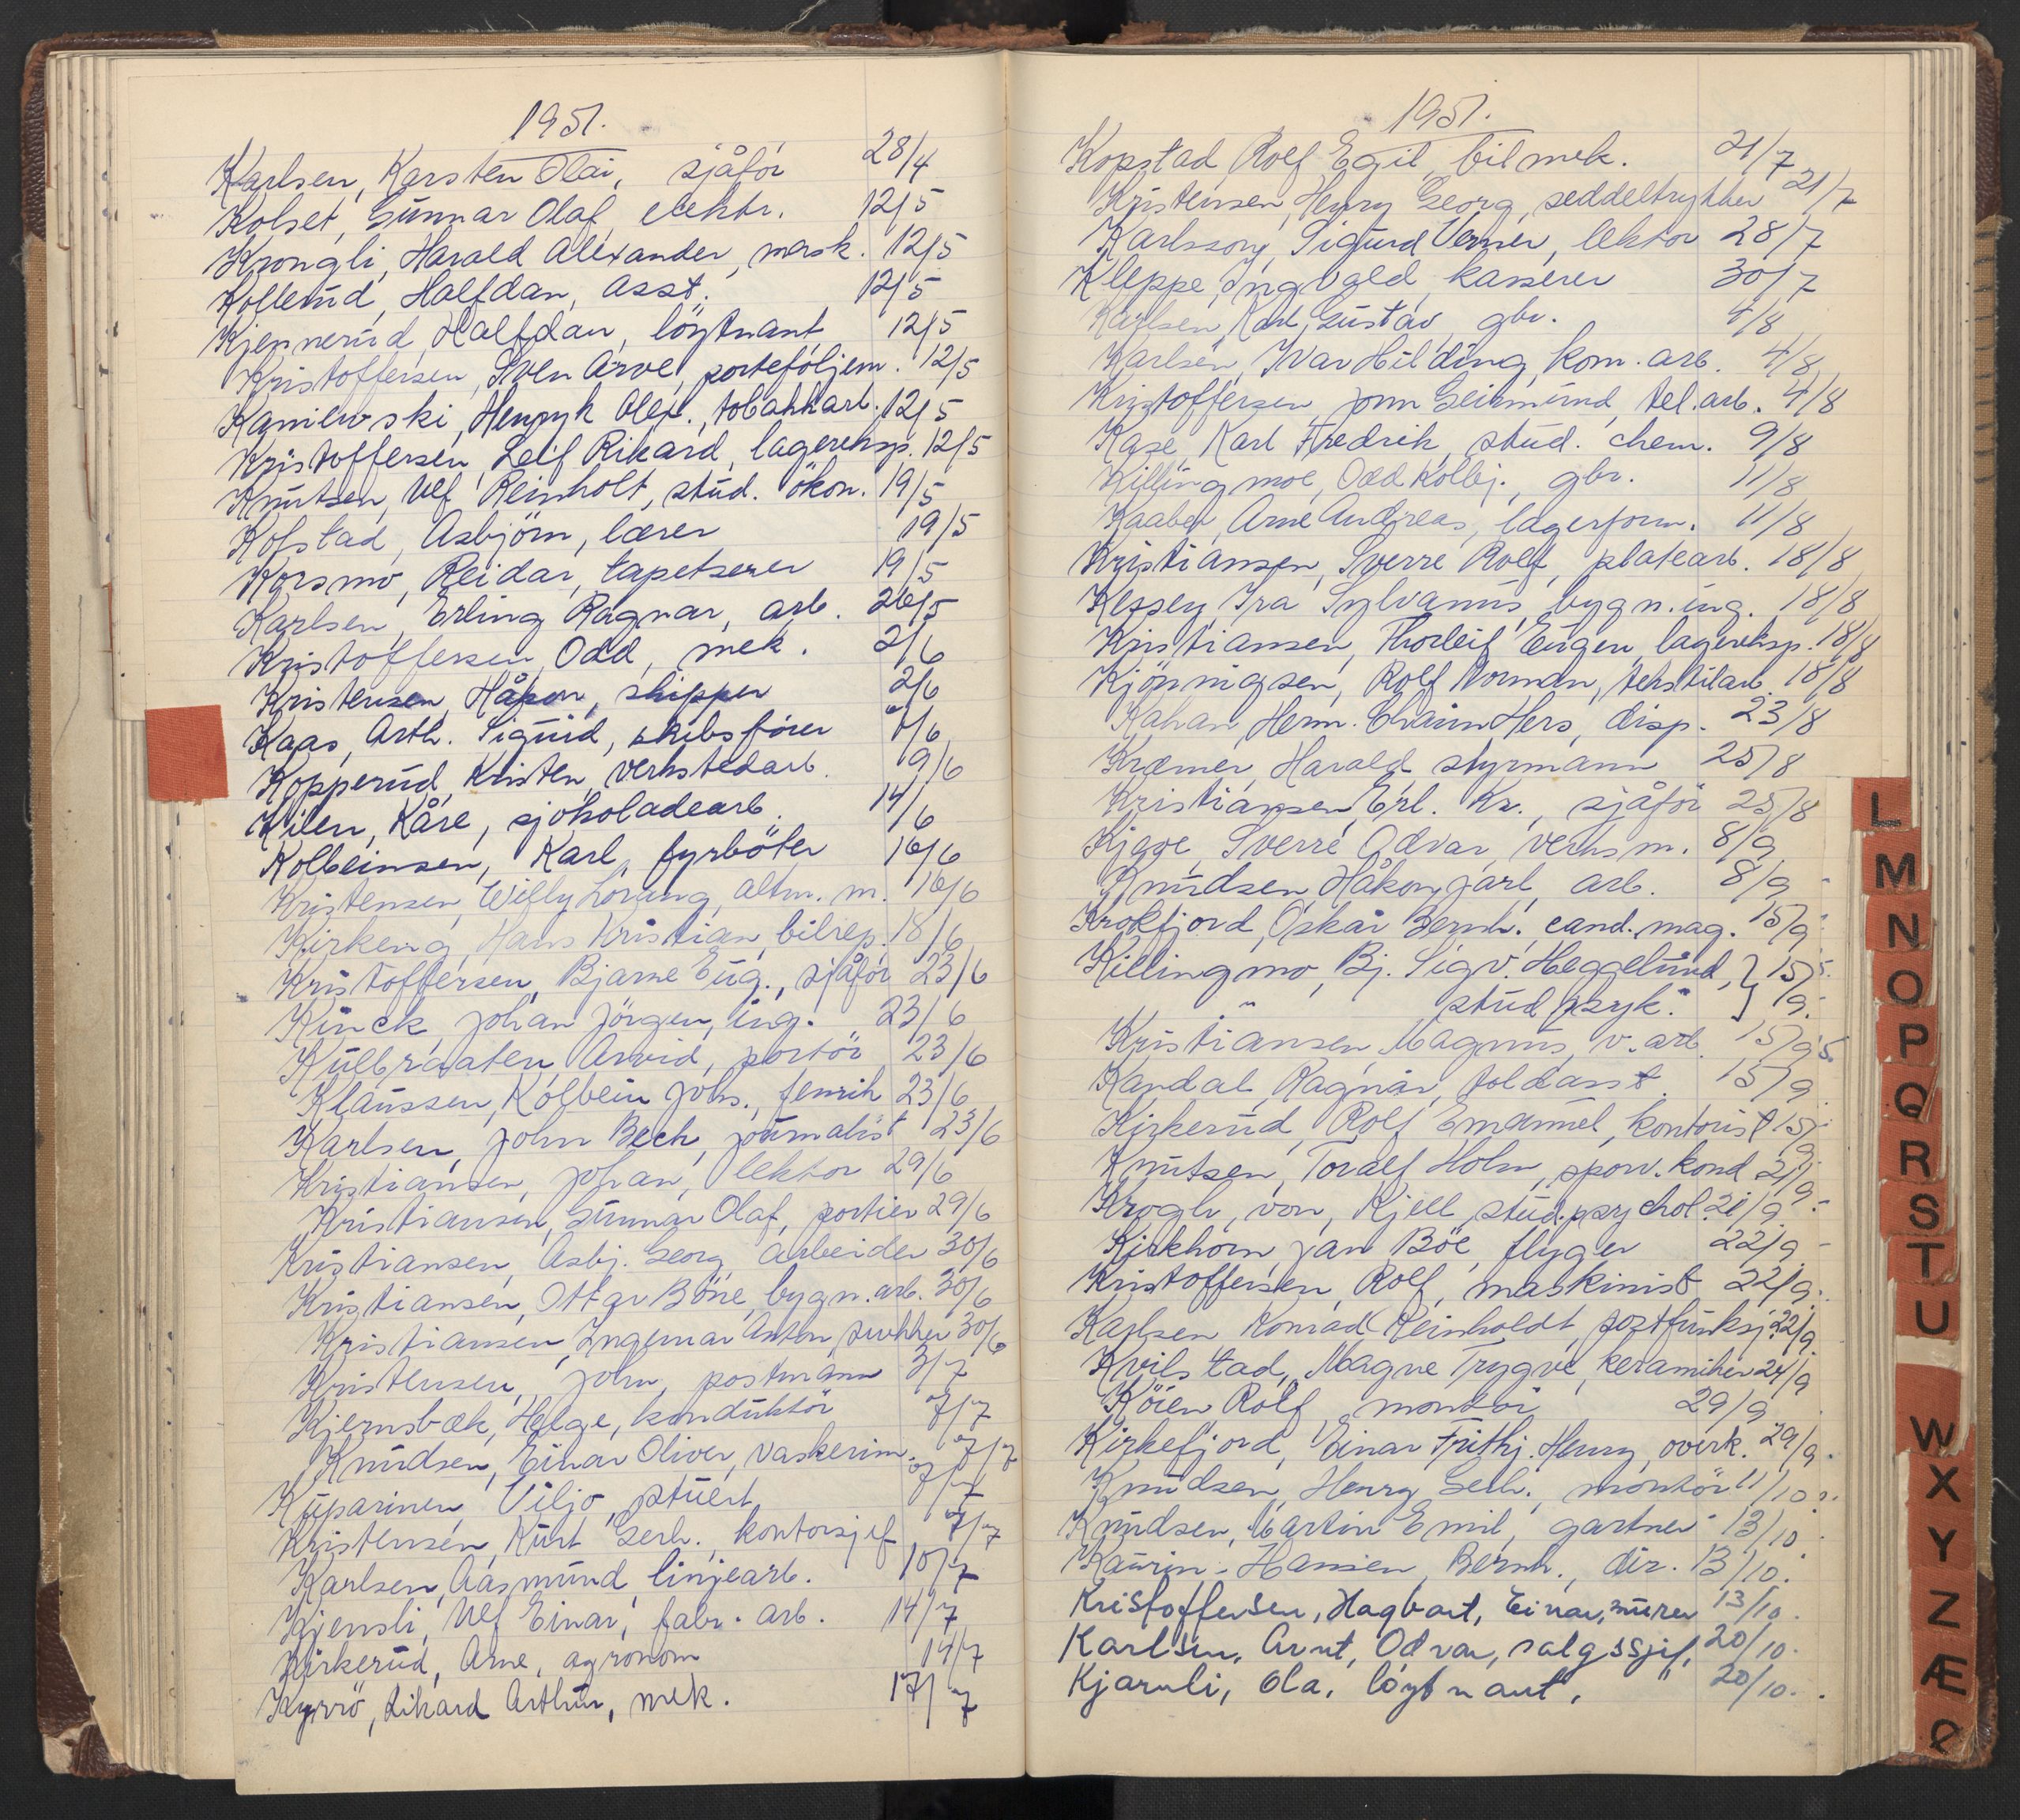 1951.
Karlsen, Karsten Olai, sjåför 28/4
Kolset, Gunnar Olaf, elektr. 12/5
Krongli, Harald Alexander, mask. 12/5
Kollerud, Halfdan, Asst. 12/5
Kjennerud, Halfdan, löytnant 12/5
Kristoffersen, Sven Arve, porteföljem. 12/5
Kamilewski, Henryk Alex., tobakkarb. 12/5
Kristoffersen, Leif Rikard, lagereksp. 12/5
Knutsen, Ulf Reinholt, stud. ökon. 19/5
Kofstad, Asbjörn, lærer 19/5
Korsmo, Reidar, tapetserer 19/5
Karlsen, Erling Ragnar, arb. 26/5
Kristoffersen, Odd, mek. 2/6
Kristensen, Håkon, skipper 2/6
Kaas, Arth. Sigurd, skibsfører /6
Kopperud, Kristen, verkstedarb. 9/6
Kilen, Kåre, sjokoladearb. 14/6
Kolbeinsen, Karl, fyrböter 16/6
Kristensen, Willy Lorang, altm. m. 16/6
Kirkeng, Hans Kristian, bilrep. 18/6
Kristoffersen, Bjarne Eug., sjåför 23/6
Kinck, Johan Jörgen, ing. 23/6
Kulbraaten, Arvid, portör 23/6
Klaussen, Kolbein Johs., fenrik 23/6
Karlsen, John Bech, journalist 23/6
Kristiansen, Johan, lektor 29/6
Kristiansen, Gunnar Olaf, portier 29/6
Kristiansen, Asbj. Georg, arbeider 30/6
Kristiansen, Ottar Böne, bygn. arb. 30/6
Kristiansen, Ingemar Anton, snekker 30/6
Kristensen, John, postmann 3/7
Kjernsbæk, Helge, konduktör 7/7
Knudsen, Einar Oliver, vaskerim. 7/7
Kuparinen, Viljo, stuert 7/7
Kristensen, Kurt Gerh., kontorsjef 7/7
Karlsen, Aasmund, linjearb. 10/7
Kjensli, Ulf Einar, fabr. arb. 14/7
Kirkerud, Arne, agronom 14/7
Kyrrö, Rikard Arthur, mek. 17/7
1951.
Kopstad, Rolf Egil, bilmek. 21/7
Kristensen, Henry Georg, seddeltrykker 21/7
Karlsson, Sigurd Verner, lektor 28/7
Kleppe, Ingvald, kasserer 30/7
Karlsen, Karl Gustav, gbr. 4/8
Karlsen, Ivar Hilding, kom. arb. 4/8
Kristoffersen, Jonn Geirmund, tel. arb. 4/8
Kase, Karl Fredrik, stud. chem. 9/8
Killingmoe, Odd Kolbj., gbr. 11/8
Kaaber, Arne Andreas, lagerform. 11/8
Kristiansen, Sverre Rolf, platearb. 18/8
Kessey, Ira Sylvanus, bygn. ing. 18/8
Kristiansen, Thorleif Eugen, lagereksp. 18/8
Kjönnigsen, Rolf Norman, tekstilarb. 18/8
Kahan, Herm. Chaim Hers, disp. 23/8
Kræmer, Harald, styrmann 25/8
Kristiansen, Erl. Kr., sjåför 25/8
Kjave, Sverre Odvar, verksm. 8/9
Knudsen, Håkon Jarl, arb. 8/9
Krokfjord, Oskar Bernh. cand. mag. 15/9
Killingmo, Bj. Sigv. Heggelund, } 15/9
" stud psyk.
Kristiansen, Magnus, v. arb. 15/9
Kandal, Ragnar, toldasst. 15/9
Kirkerud, Rolf Emanuel, kontorist 15/9
Knutsen, Toralf Holm, sporv. kond 21/9
Krogh, von, Kjell, stud. psychol. 21/9
Kirkhorn, Jan Böe, flyger 22/9
Kristoffersen, Rolf, maskinist 22/9
Karlsen, Konrad Reinholdt, postfunksj. 22/9
Kvilstad, Magne Trygve, keramiker 24/9
Köien Rolf, montör 29/9
Kirkefjord, Einar Frithj. Henry, overk. 29/9
Knudsen, Henry Gerh., montör 11/10
Knudsen, Martin Emil, gartner 13/10
Kaurin-Hansen, Bernh., dir. 13/10.
Kristoffersen, Hagbart, Einar, murer 13/10.
Karlsen, Arnt, Odvar, salgssjef, 20/10.
Kjarnli, Ola, löytnant, 20/10.
L
M
N
O
P
Q
R
S
T
U
W
X
Y
Z
Æ